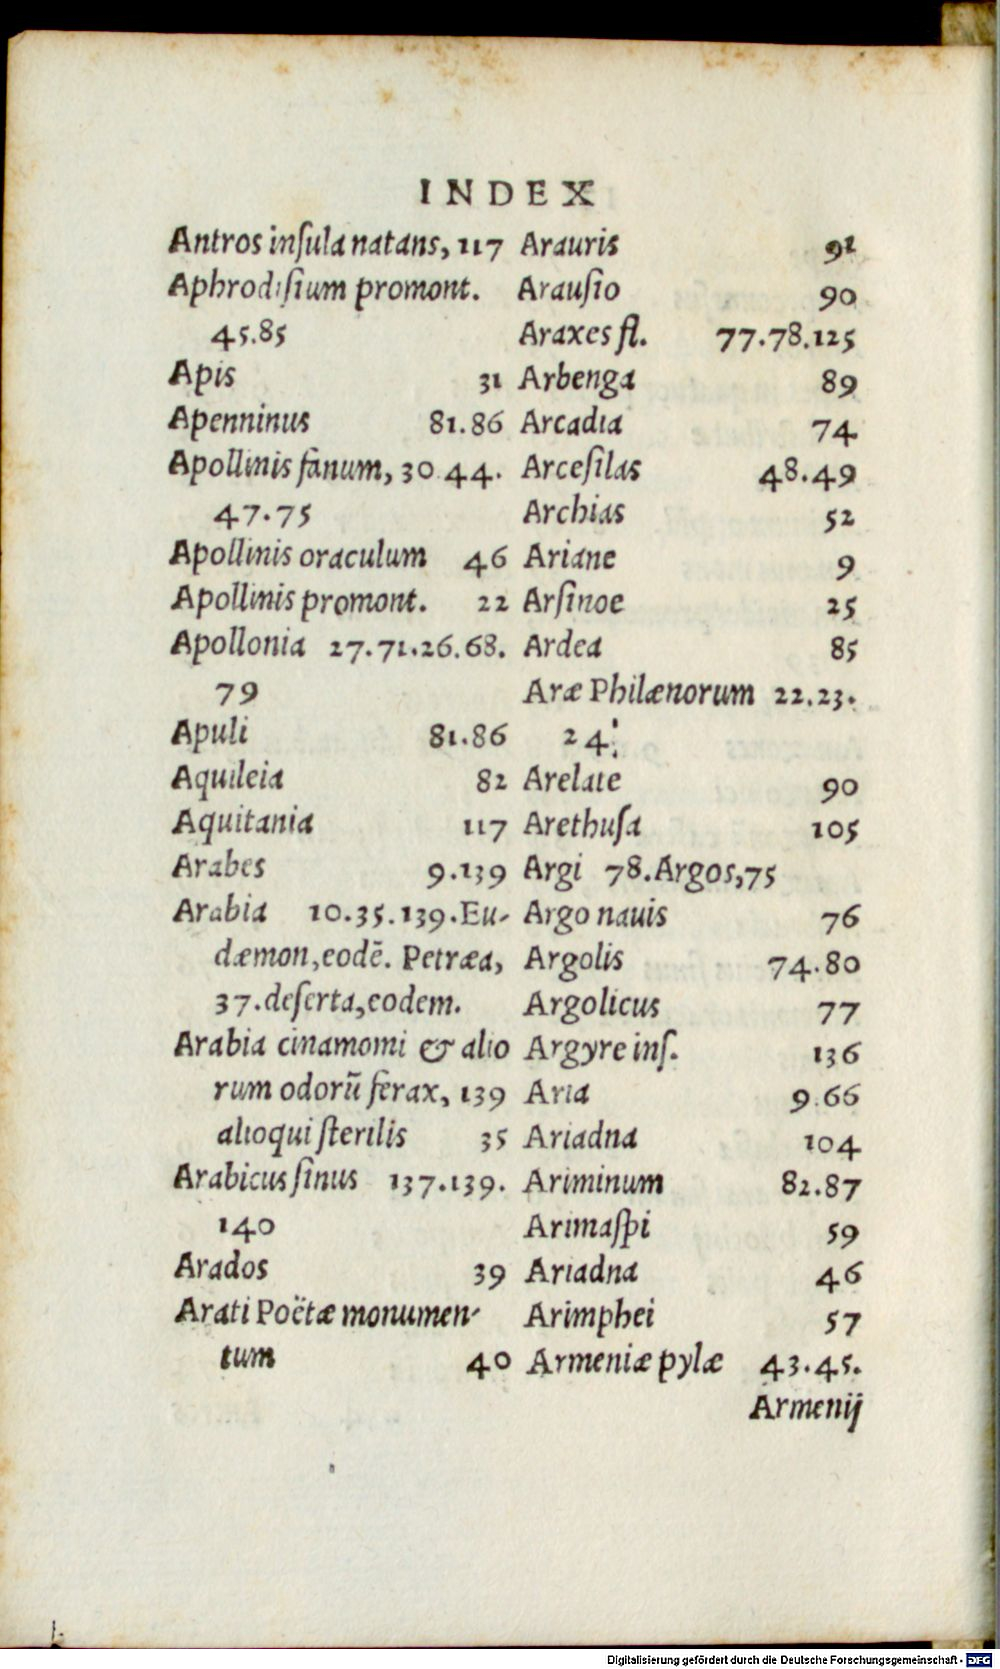 INDEX
Antros inſula natans, 117
Aphrodiſium promont.
45.85
Apis 31
Apenninus 81.86
Apollinis fanum, 30.44.
47.75
Apollinis oraculum 46
Apollinis promont. 22
Apollonia 27.71.26.68.
79
Apuli 81.86
Aquileia 82
Aquitania 117
Arabes 9.139
Arabia 10.35.139.Eu-
dæmon,eodē. Petræa,
37.deſerta,eodem.
Arabia cinamomi & alio
rum odorū ferax, 139
alioqui ſterilis 35
Arabicus ſinus 137.139.
140
Arados 39
Arati Poëtæ monumen-
tum 40
Arauris 91
Arauſio 90
Araxes fl. 77.78.125
Arbenga 89
Arcadia 74
Arceſilas 48.49
Archias 52
Ariane 9
Arſinoe 25
Ardea 85
Aræ Philænorum 22.23.
24.
Arelate 90
Arethuſa 105
Argi 78.Argos,75
Argo nauis 76
Argolis 74.80
Argolicus 77
Argyre inſ. 136
Aria 9.66
Ariadna 104
Ariminum 82.87
Arimaſpi 59
Ariadna 46
Arimphei 57
Armeniæ pylæ 43.45.
Armenij
Digitalisierung gefördert durch die Deutsche Forschungsgemeinschaft - DFG